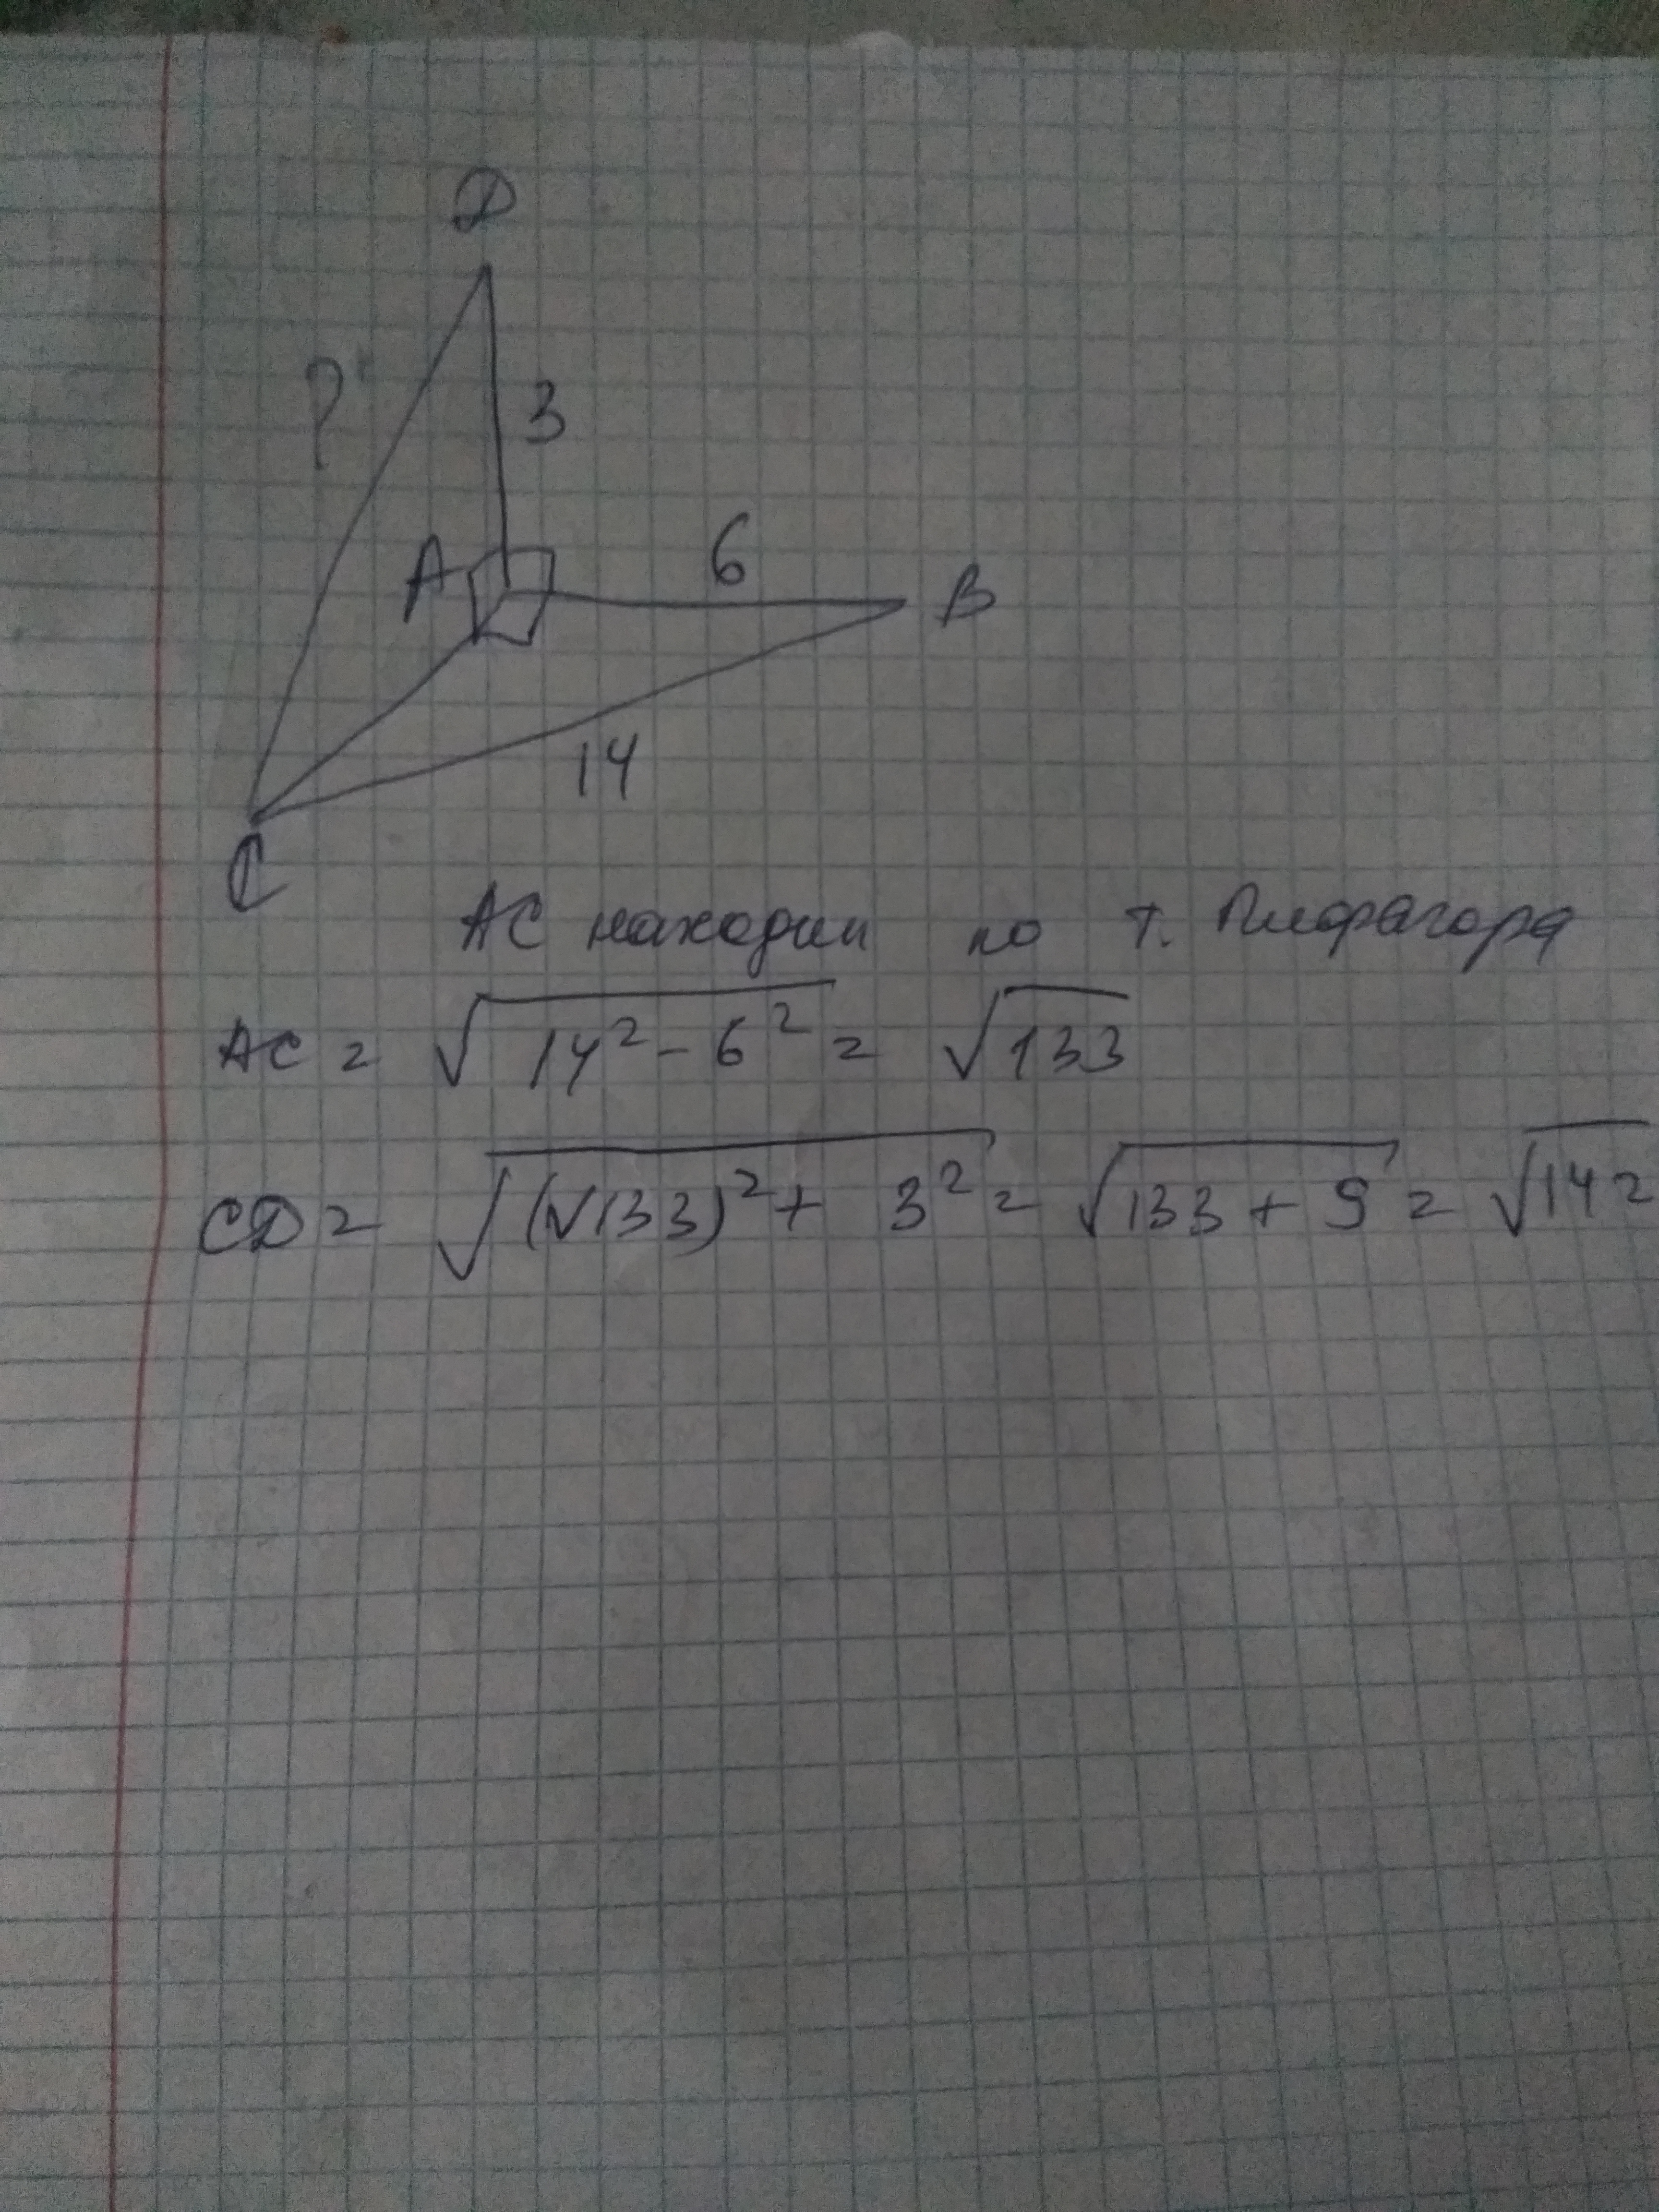 D
? 3
A 6 B
14
C
AC находим по т. Пифагора
AC = √(14² - 6²) = √133
CD = √((√133)² + 3²) = √(133 + 9) = √142